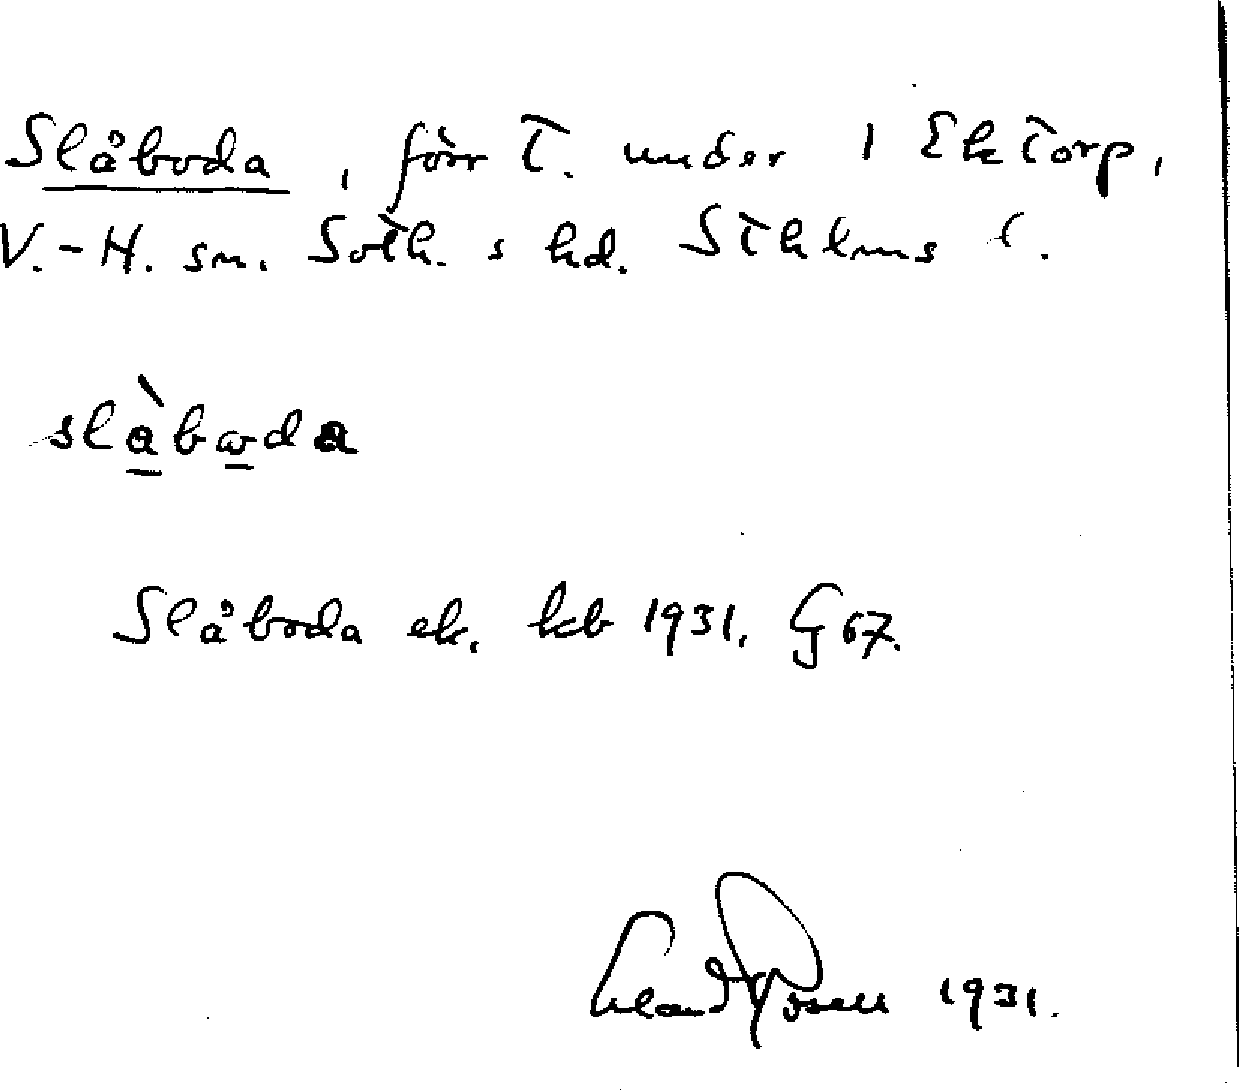 Slåboda, förr T. under 1 Ektorp,
V.-H. sn. Soth.s hd. Sthlms l.
slàbωda
Slåboda ek. kb 1931. G 67.
Erland Rosell 1931.